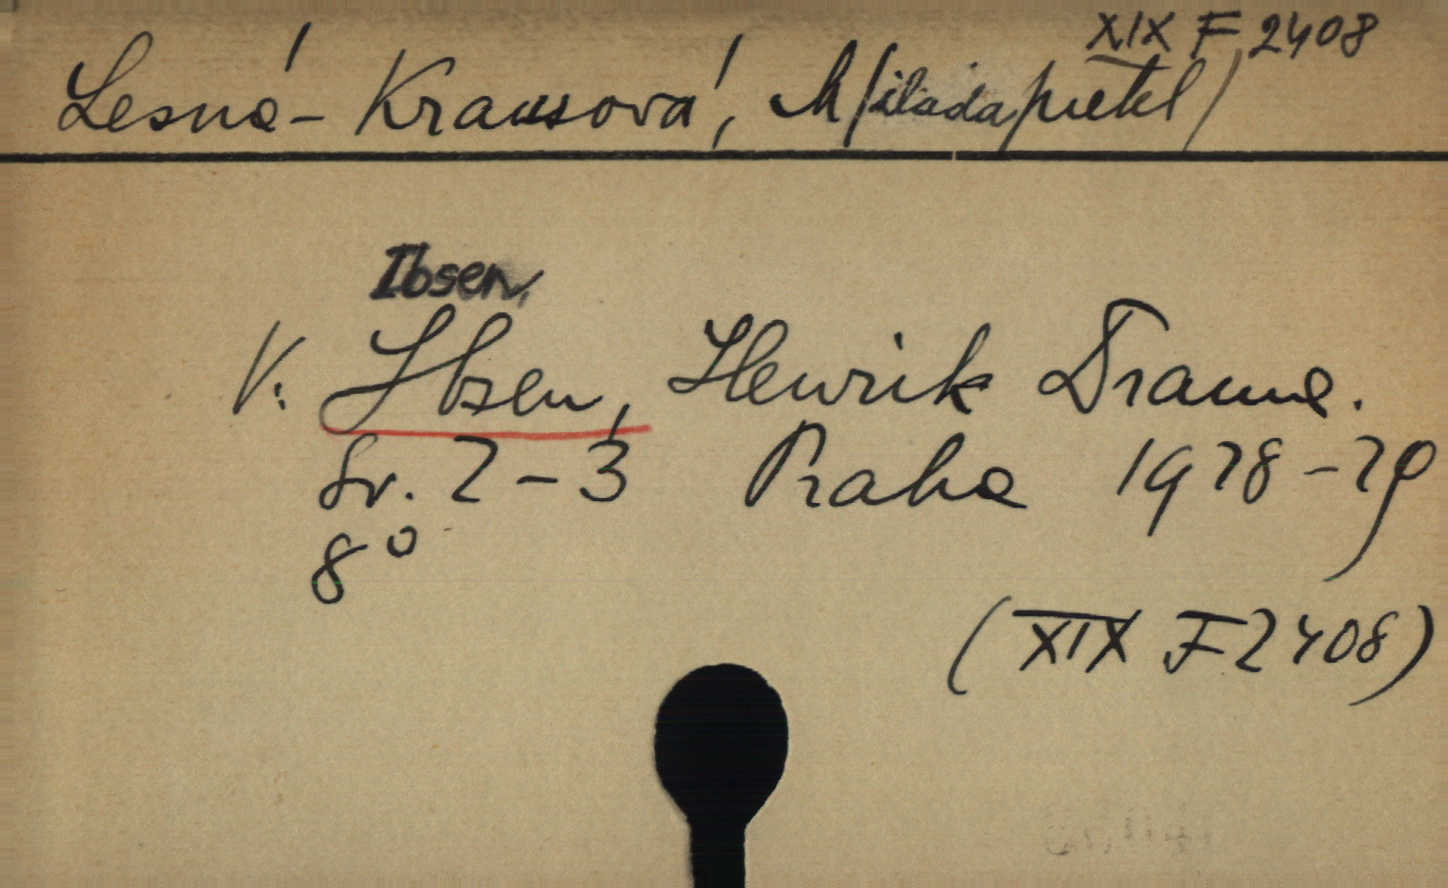 XIX F 2408
Lesná-Krausová, M/ilada, překl/
Ibsen,
V. Ibsen, Henrik Drama.
Sv. 2-3 Praha 1928-29
8°
(XIX F 2408)